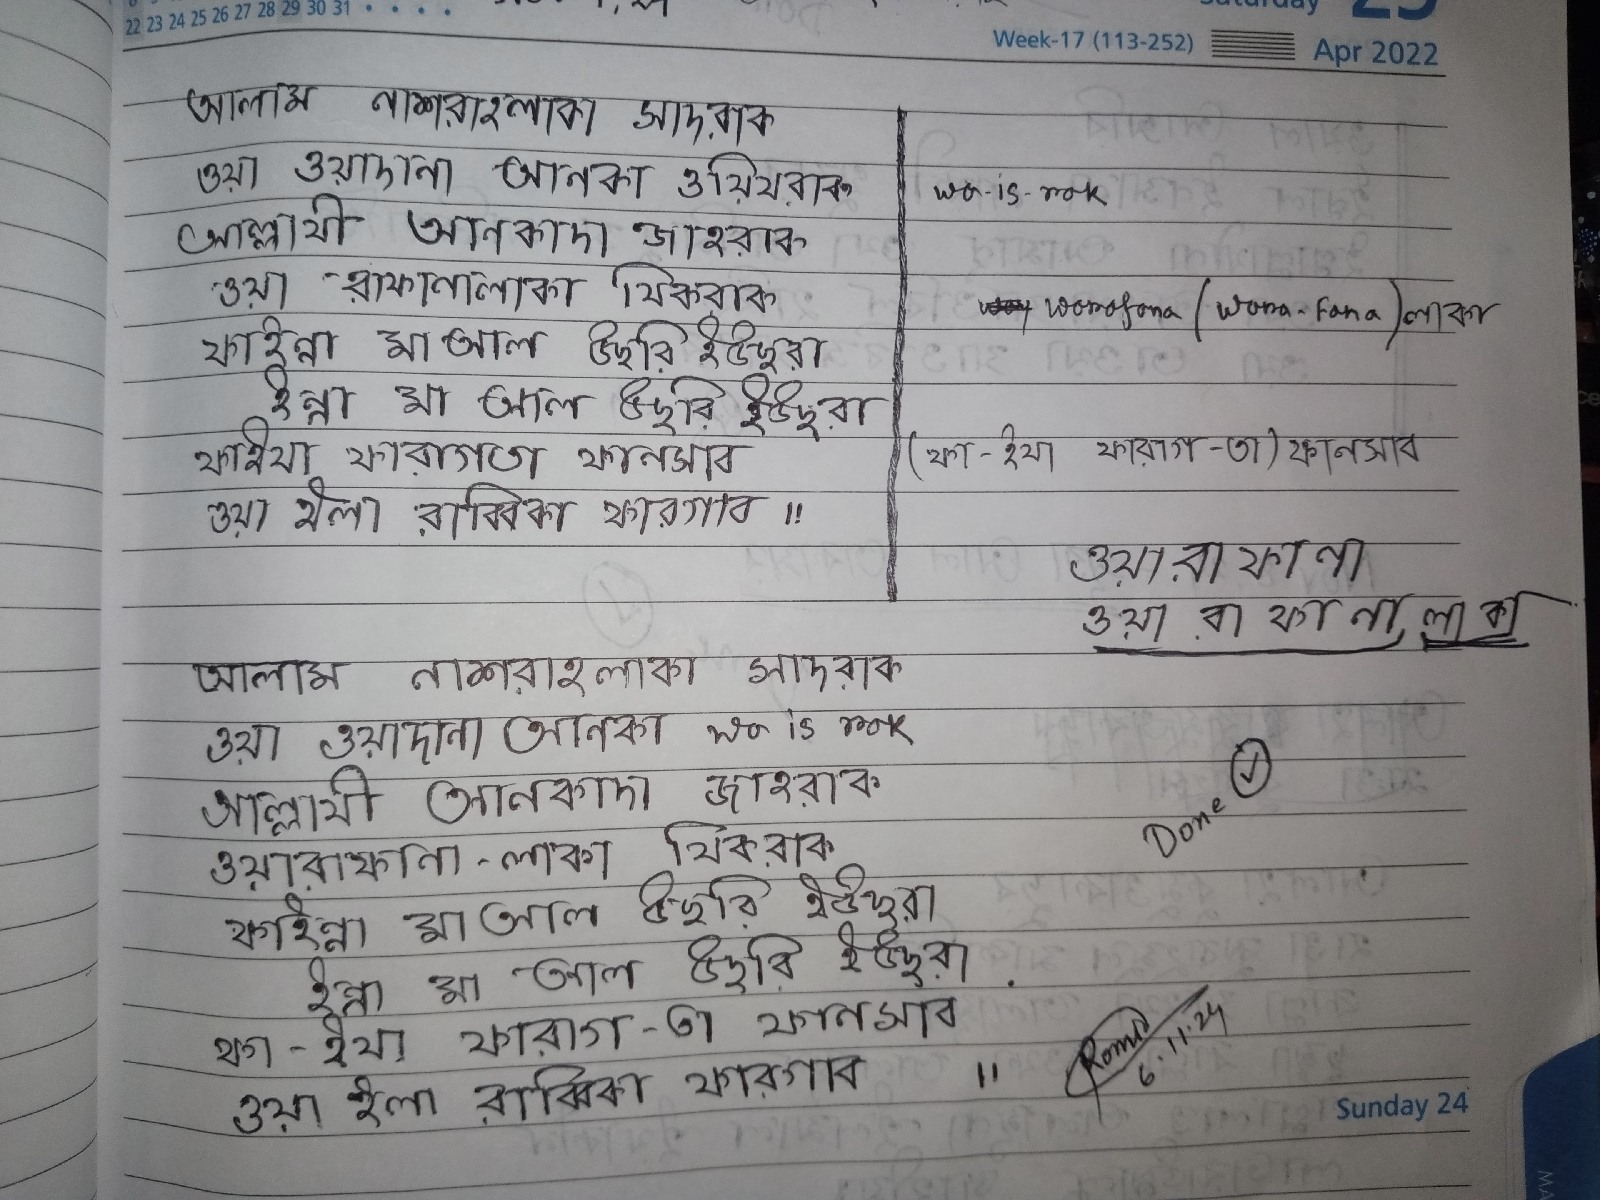 22 23 24 25 26 27 28 29 30 31
Saturday 23
Week-17 (113-252)
Apr 2022
আলাম নাশরাহলাকা সাদরাক
ওয়া ওয়াদানা আনকা ওযিযরাক wa-is-rok
আল্লাযী আনকাদা জাহরাক
ওয়া রাফানালাকা যিকরাক worafana (wora-fana) লাকা
ফাইন্না মা আল উছরি ইউছুরা
ইন্না মা আল উছরি ইউছুরা
ফাইযা ফারাগতা ফানসাব (ফা-ইযা ফারাগ-তা) ফানসাব
ওয়া ইলা রাব্বিকা ফারগাব ॥
ওয়া রা ফা না
ওয়া রা ফা না, লা কা
আলাম নাশরাহলাকা সাদরাক
ওয়া ওয়াদানা আনকা wa is rok
আল্লাযী আনকাদা জাহরাক
Done
ওয়ারাফানা-লাকা যিকরাক
ফাইন্না মা আল উছরি ইউছুরা
ইন্না মা আল উছরি ইউছুরা.
ফা-ইযা ফারাগ-তা ফানসাব
6.11.24
ওয়া ইলা রাব্বিকা ফারগাব ॥
Sunday 24